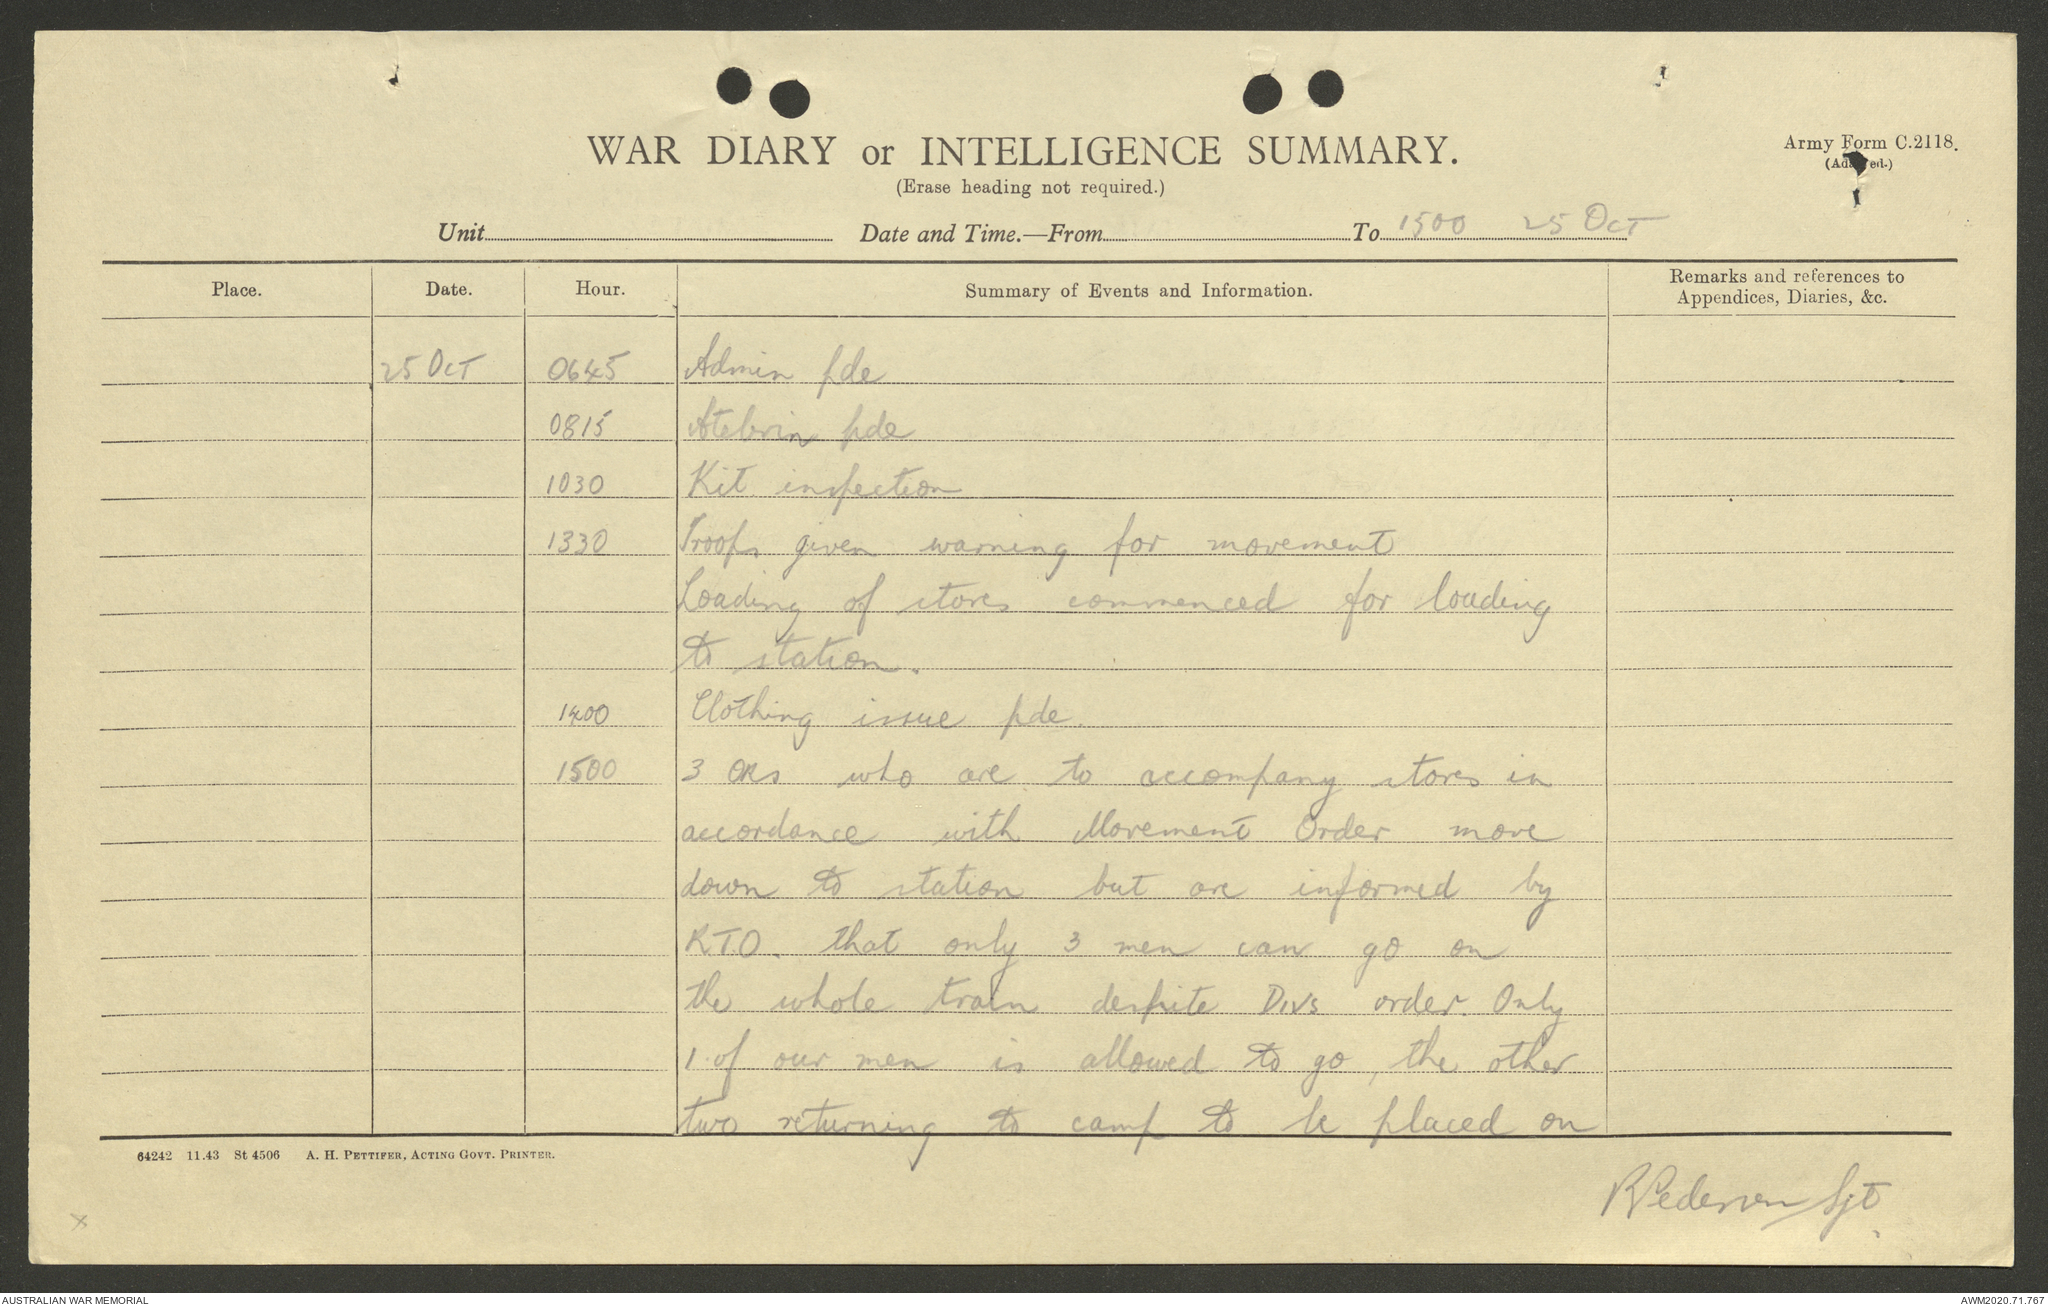 WAR DIARY or INTELLIGENCE SUMMARY.
Army Form C.2118.
(Erase heading not required.)
Unit Date and Time.—From To 1500 25 Oct
Place. Date. Hour. Summary of Events and Information. Remarks and references to Appendices, Diaries, &c.
25 Oct 0645 Admin pde
0815 Atebrin pde
1030 Kit inspection
1330 Troops given warning for movement
Loading of stores commenced for loading
to station.
1400 Clothing issue pde.
1500 3 ORs who are to accompany stores in
accordance with Movement Order move
down to station but are informed by
RTO. that only 3 men can go on
the whole train despite Divs order. Only
1 of our men is allowed to go, the other
two returning to camp to be placed on
64242 11.43 St 4506 A. H. PETTIFER, ACTING GOVT. PRINTER.
RPedersen Sgt
x
AUSTRALIAN WAR MEMORIAL
AWM2020.71.767